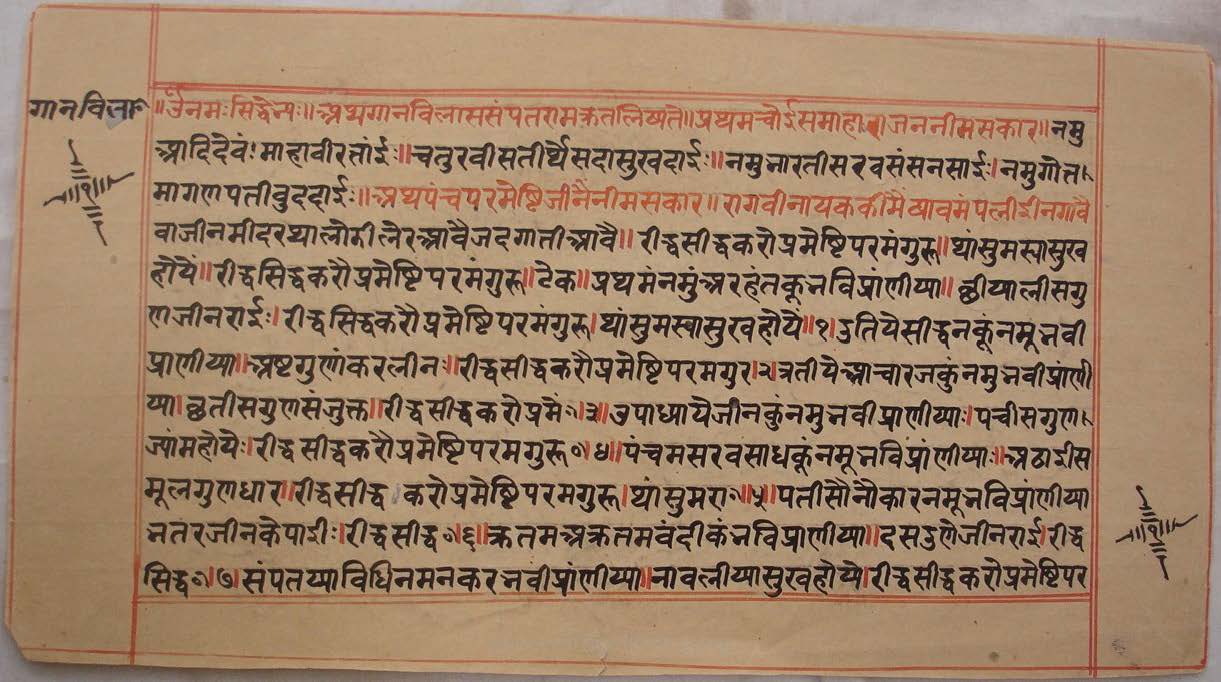 गानविला॰
॥ॐनमःसिद्धेभ्यः॥अथगानविलाससंपतरामक्रतलिष्यते॥प्रथमचौईसमाहाराजननीमसकार॥नमु
आदिदेवं।माहावीरतांईः॥चतुरवीसतीर्थसदासुखदाईः॥नमुभारतीसरवसंसनसाईः।नमुगोत
मागणपतीवुददाईः॥अथपंचपरमेष्टिजीनैनीमसकार॥रागवीनायककी
वाजीनमीदर रीद्धसीद्धकरौप्रमेष्टिपरमंगुरू॥थांसुमरयासुख
होयै॥रीद्धसिद्धकरौप्रमेष्टिपरमंगुरू॥टेक॥प्रथमंनमुंअरहंतकूभविप्रांणीया॥छीयालीसगु
णजीनराईः।रीद्धसिद्धकरौप्रमेष्टिपरमंगुरू।थांसुमरयासुखहोयै॥१।दुतियेसीद्धनकूंनमूंभवी
प्राणीया॥अष्टगुणांकरलीनः॥रीद्धसीद्धकरौप्रमेष्टिपरमगुर।२।त्रतीयेआचारजकुंनमुभवीप्रांणी
या।छतीसगुणसंजुक्त॥रीद्धसीद्धकरौप्रमे॰।३।उपाध्यायेजीनकुंनमुभवीप्राणीयाः।पचीसगुणा
ज्यांमहोयेः।रीद्धसीद्धकरौप्रमेष्टिपरमगुरू॰।४॥पंचमसरवसाधकूंनमूभविप्रांणीयाः॥अठाईस
मूलगुणधार।रीद्धसीद्ध करौप्रमेष्टिपरमगुरू।थांसुमरा॰॥५॥पतीसौनौकारनमूभविप्रांणीया
नतरजीनकेपाईः।रीद्धसीद्ध॰।६॥क्रतमअक्रतमवंदीकंभविप्राणीया॥दसदुणेजीनराई।रीद्ध
सिद्ध॰।७।संपतय्याविधिनमनकरभवीप्रांणीया॥भावलीयासुखहोये।रीद्धसीद्धकरौप्रमेष्टिपर